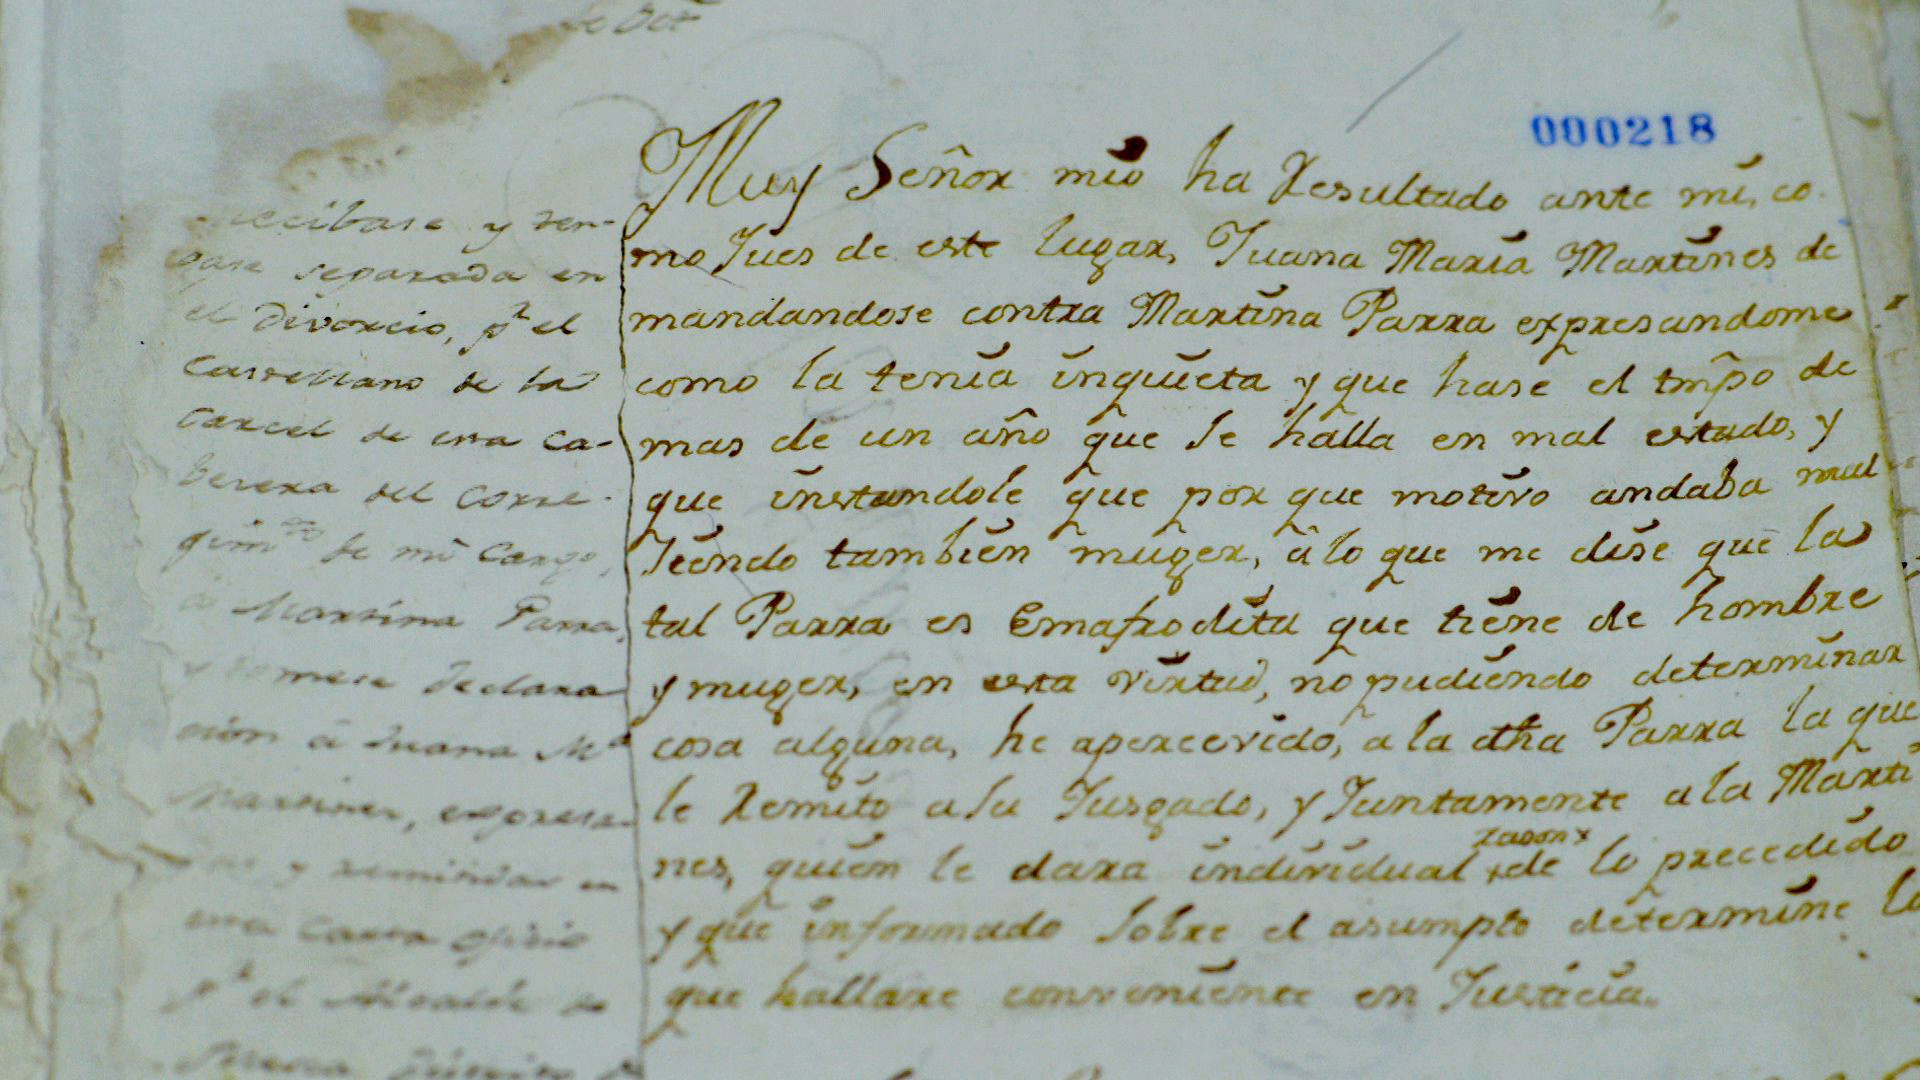 de Oct.e
000218
Muy Señor mio ha Resultado ante mi, co-
mo Jues de este lugar, Juana Maria Martines de
mandandose contra Martina Parra expresandome
como la tenia inquieta y que hase el tmpo de
mas de un año que se halla en mal estado, y
que instandole que por que motivo andaba mal
siendo tambien muger, â lo que me dise que la
tal Parra es Emafrodita que tiene de hombre
y muger, en esta virtud, no pudiendo determinar
cosa alguna, he apercevido, a la dha Parra la que
le Remito a su Jusgado, y Juntamente a la Marti
nes, quien le dara individual razon de lo precedido
y que informado sobre el asumpto determine lo
que hallare conveniente en Justicia.
Recibase y ten-
gase separada en
el Divorcio, pr el
Castellano de la
Carcel de esta Ca-
besera del Corre-
gimto de mi Cargo,
a Martina Parra,
y tomese declara
ción â Juana Ma
Martines, expresa-
y remitidas en
esta Carta oficio
pr el Alcalde de